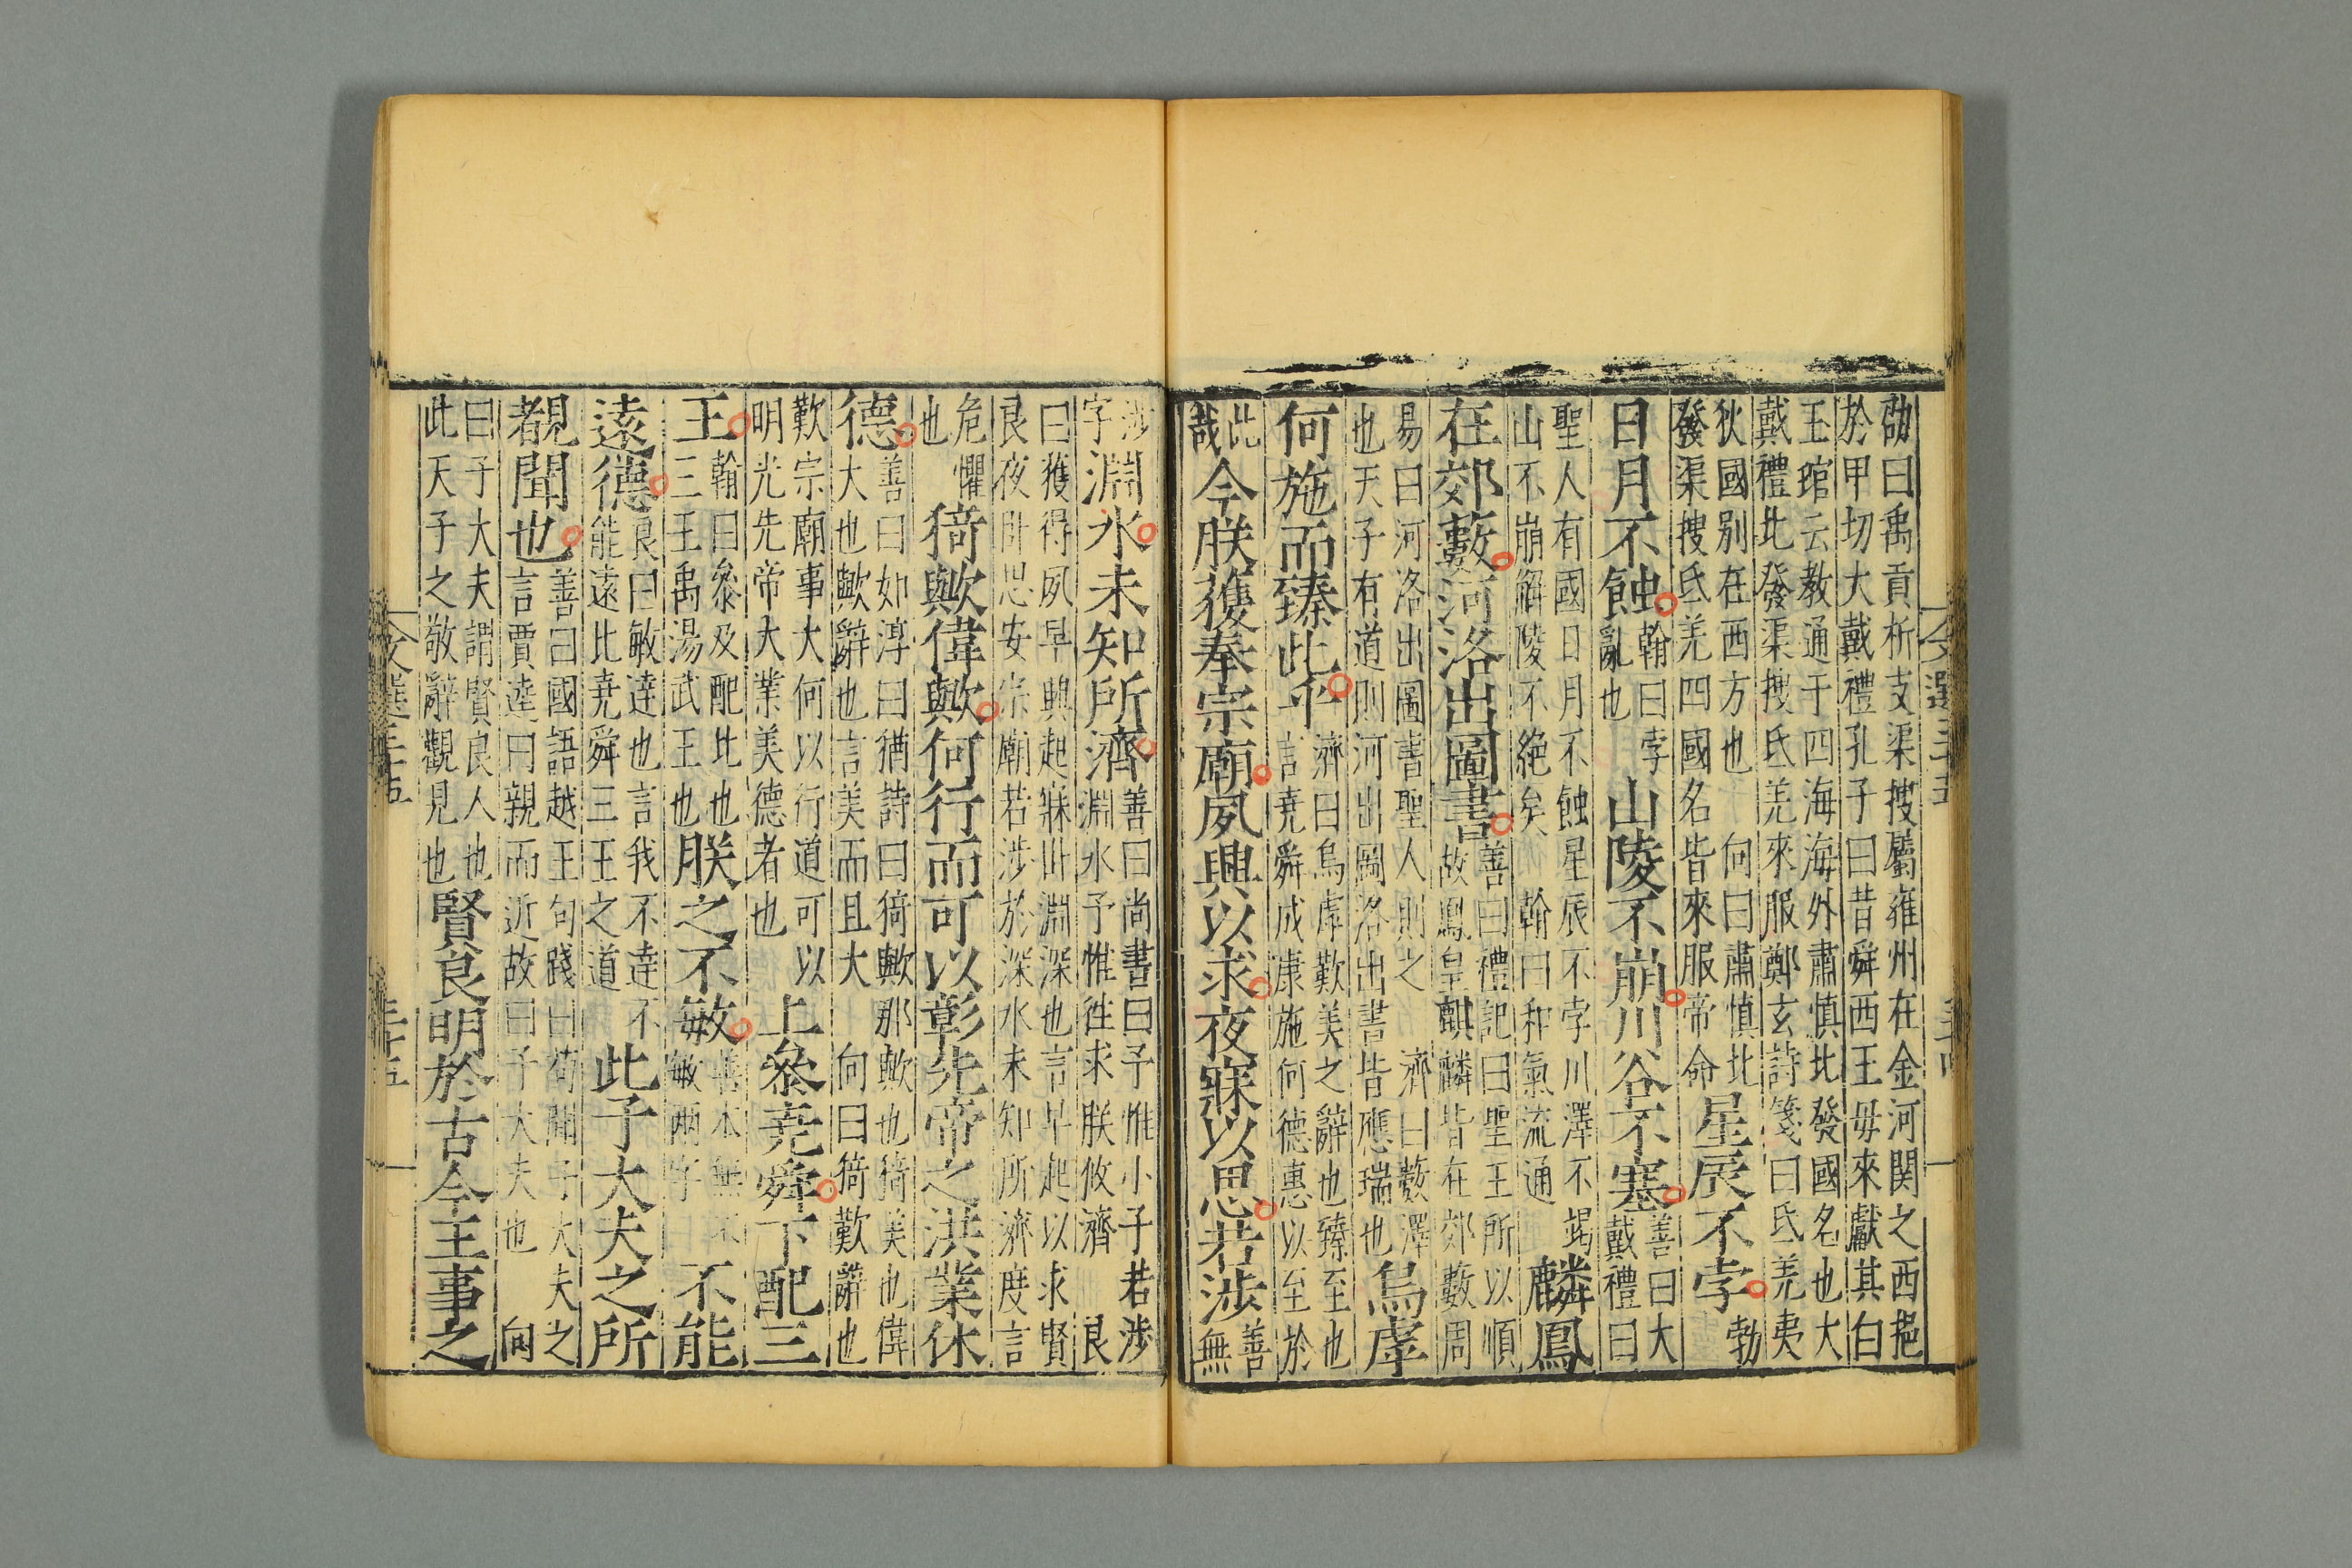 劭曰禹貢析支渠搜屬雍州在金河関之西挹
於甲切大戴禮孔子曰昔舜西王毋來獻其白
玉琯云教通于四海海外肅慎北發國名也大
戴禮北發渠搜氐羌來服鄭玄詩箋曰氐羌夷
狄國別在西方也 向曰肅慎北
發渠搜氐羌四國名皆來服帝命
星辰不孛勃
日月不蝕翰曰孛
亂也
山陵不崩川谷不塞善曰大
戴禮曰
聖人有國日月不蝕星辰不孛川澤不竭
山不崩解陵不絶矣 翰曰和氣流通
麟鳳
在郊藪河洛出圖書善曰禮記曰聖王所以順
故鳳皇麒麟皆在郊藪周
易曰河洛出圖書聖人則之 濟曰藪澤
也天子有道則河出圖洛出書皆應瑞也
烏虖
何施而臻此乎濟曰烏虖歎美之辭也臻至也
言堯舜成康施何德惠以至於
此
哉
今朕獲奉宗廟夙興以求夜寐以思若涉善
無
涉
字
淵水未知所濟善曰尚書曰予惟小子若涉
淵水予惟徃求朕攸濟 良
曰獲得夙早興起寐卧淵深也言早起以求賢
良夜卧思安宗廟若涉於深水未知所濟度言
危懼
也
猗歟偉歟何行而可以彰先帝之洪業休
德善曰如淳曰猶詩曰猗歟那歟也猗美也偉
大也歟辭也言美而且大 向曰猗歎辭也
歎宗廟事大何以行道可以
明光先帝大業美德者也
上叅堯舜下配三
王翰曰叅及配比也
三王禹湯武王也
朕之不敏善本無不
敏兩字
不能
逺德良曰敏達也言我不達不
能逺比堯舜三王之道
此子大夫之所
覩聞也善曰國語越王句踐曰苟聞子大夫之
言賈逵曰親而近故曰子大夫也 向
曰子大夫謂賢良人也
此天子之敬辭觀見也
賢良明於古今王事之